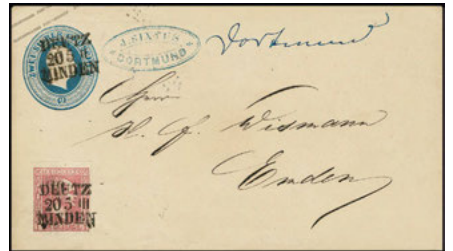 DEUTZ
20 5 III
MINDEN
J. SIXTUS
DORTMUND
Dortmund
Herrn
H. f. Wismann
Emden
DEUTZ
20 5 III
MINDEN